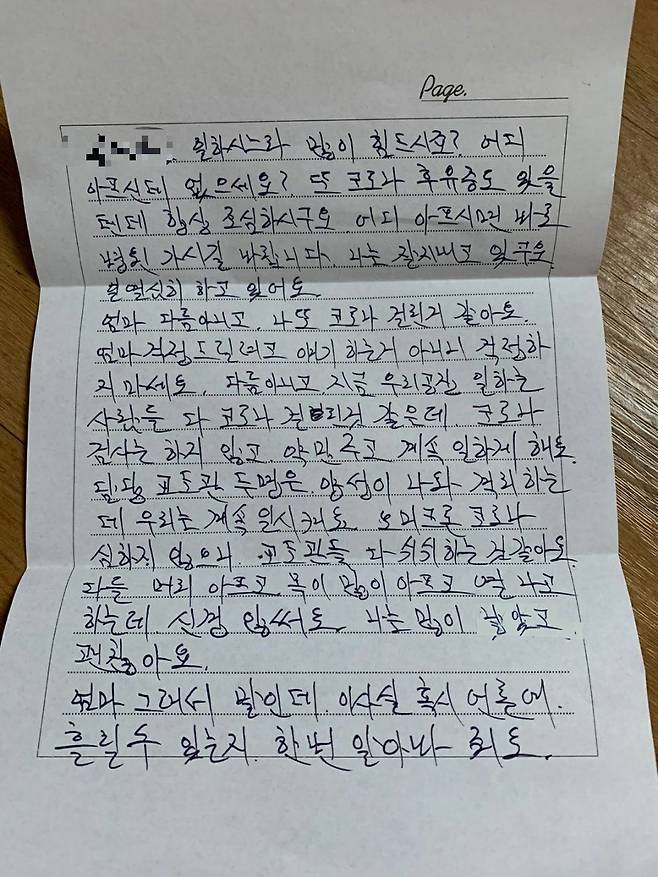 Page.
일하시느라 많이 힘드시죠? 어디
아프신데 없으세요? 또 코로나 후유증도 있을
텐데 항상 조심하시구요. 어디 아프시면 바로
병원 가시길 바랍니다. 나는 잘지내고 있구요
열심히 하고 있어요
엄마 다름아니고. 나또 코로나 걸린거 같아요.
엄마 걱정 드릴려고 얘기 하는거 아니니 걱정하
지 마세요. 다름아니고 지금 우리공장 일하는
사람들 다 코로나 걸린거 같은데. 코로나
검사는 하지 않고 약만 주고 계속 일하게 해요.
담당 교도관 두명은 양성이 나와 격리하는
데 우리는 계속 일시켜요 오미크론 코로나
심하지 않으니. 교도관들 다 쉬쉬하는것 같아요
다들 머리 아프고 목이 많이 아프고 열 나고
하는데. 신경 안써요. 나는 많이 안아프고
괜찮아요.
엄마 그래서 말인데. 이사실 혹시 언론에.
흘릴수 있는지. 한번 알아봐 줘요.